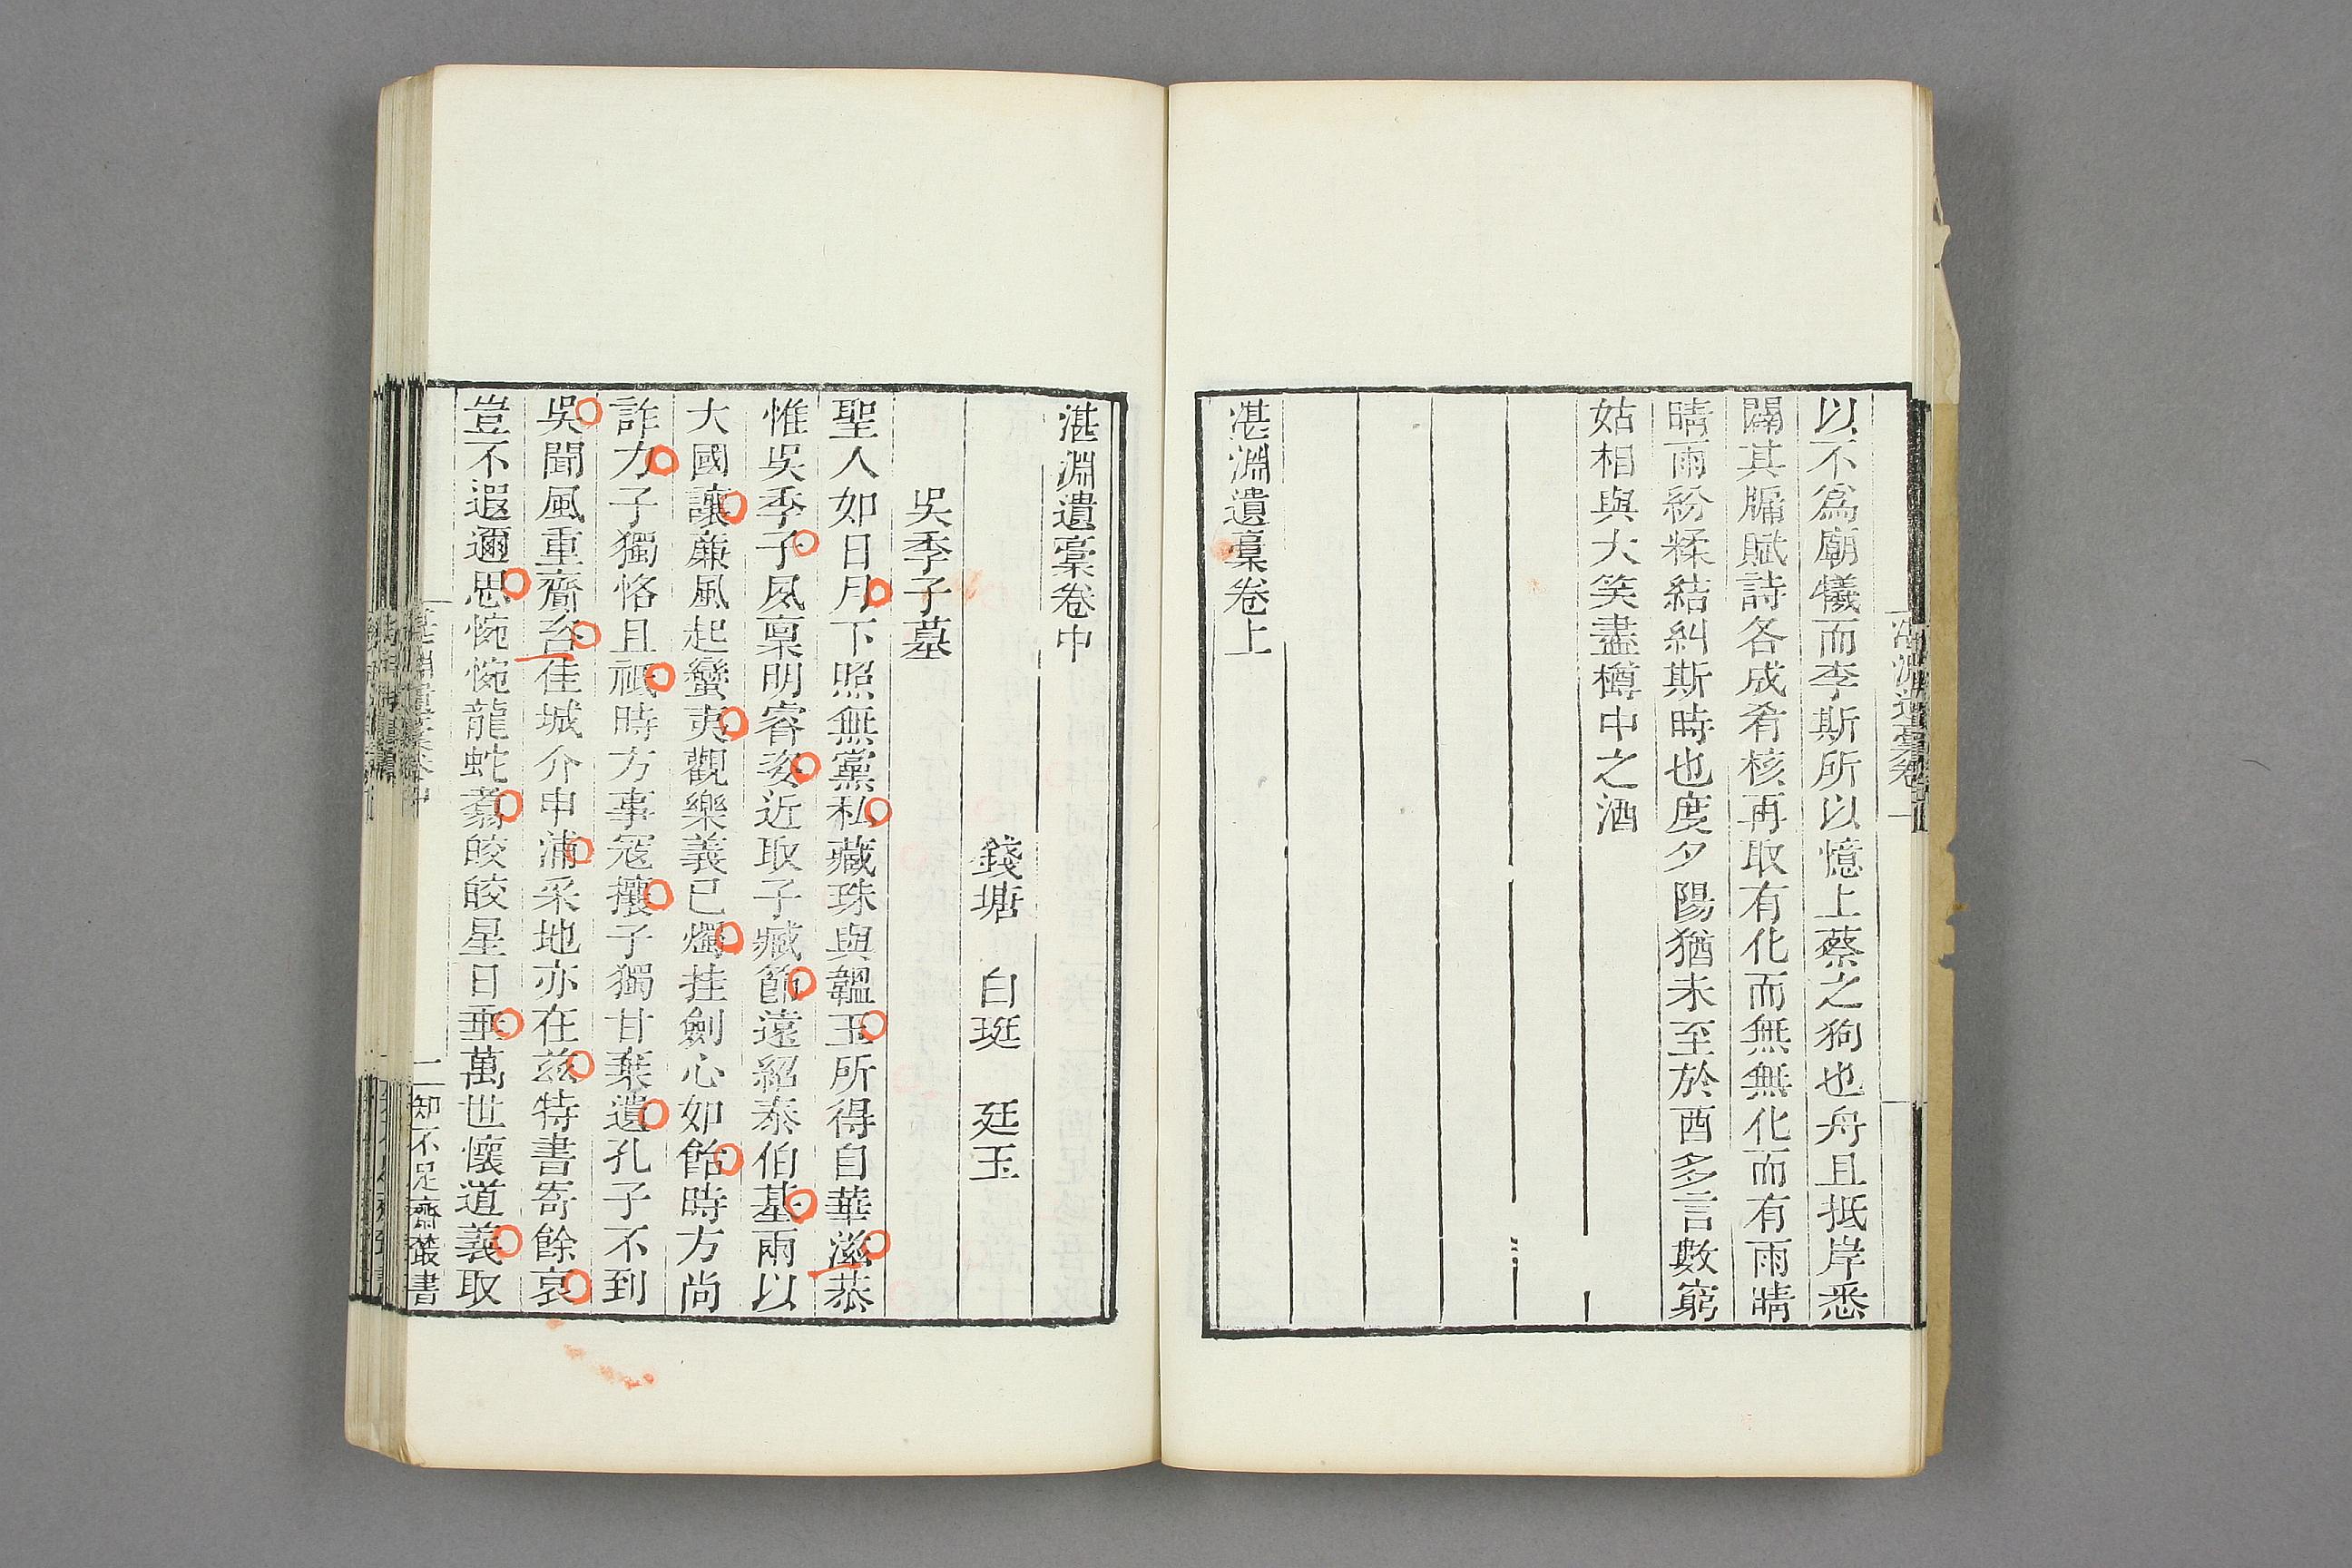 以不為廟犧而李斯所以憶上蔡之狗也舟且抵岸悉
闢其牖賦詩各成肴核再取有化而無無化而有雨晴
晴雨紛糅結糾斯時也度夕陽猶未至於酉多言數窮
姑相與大笑盡樽中之酒
湛淵遺稾卷上
湛淵遺稾卷中
錢塘 白珽 廷玉
吳季子墓
聖人如日月下照無黨私藏珠與韞玉所得自華滋恭
惟吳季子夙稟明睿姿近取子臧節遠紹泰伯基兩以
大國讓廉風起蠻夷觀樂義已燭挂劍心如飴時方尚
詐力子獨恪且祇時方事寇攘子獨甘棄遺孔子不到
吳聞風重齎咨佳城介申浦采地亦在兹特書寄餘哀
豈不遐邇思惋惋龍蛇翥皎皎星日垂萬世懷道義取
二 知不足齋叢書